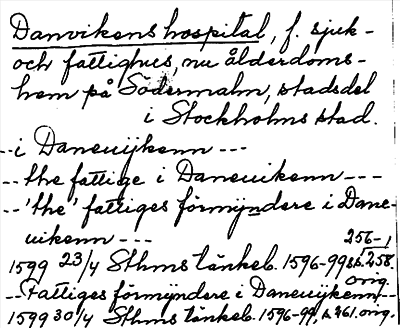 Danvikens hospital, f. sjuk-
och fattighus, nu ålderdoms-
hem på Södermalm, stadsdel
i Stockholms stad.
--i Daneuijkenn ---
-- the fattige i Daneuikenn ---
--'the' fattiges förmÿndere i Dane-
uikenn ---
256-1
1599 23/4 Sthms tänkeb. 1596-99 s. 258.
orig.
--Fattiges förmÿndere i Daneuijkenn--
1599 30/4 Sthms tänkeb. 1596-99, s. 461, orig.